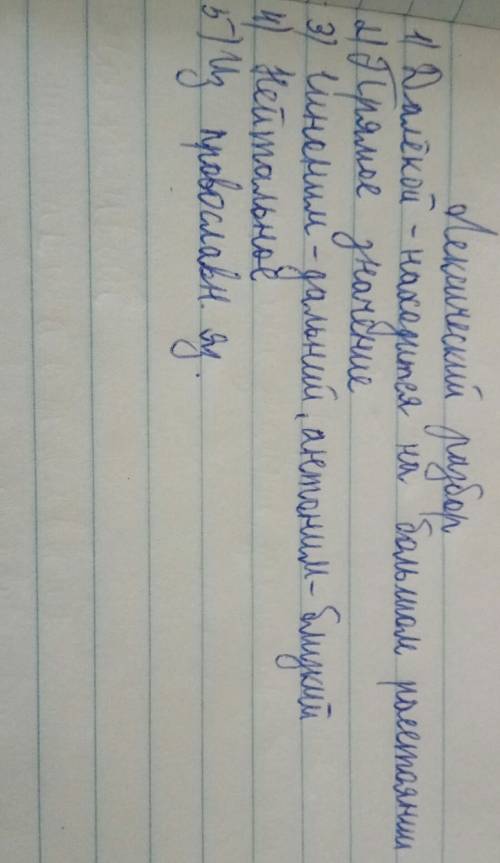 Лексический разбор
1) Далёкой - находится на большом расстоянии
2) Прямое значение
3) Синоним - дальний, антоним - близкий
4) Нейтальное
5) Из провославн. яз.